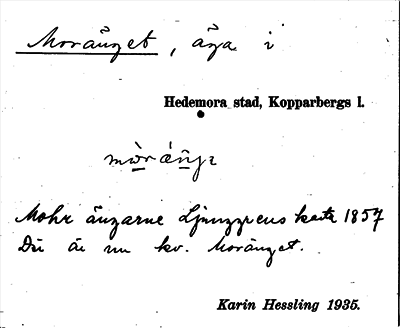 Moränget, äga i
Hedemora stad, Kopparbergs l.
Mohr ängarne Ljunggrens karta 1857
Där är nu kv. Moränget.
Karin Hessling 1935.